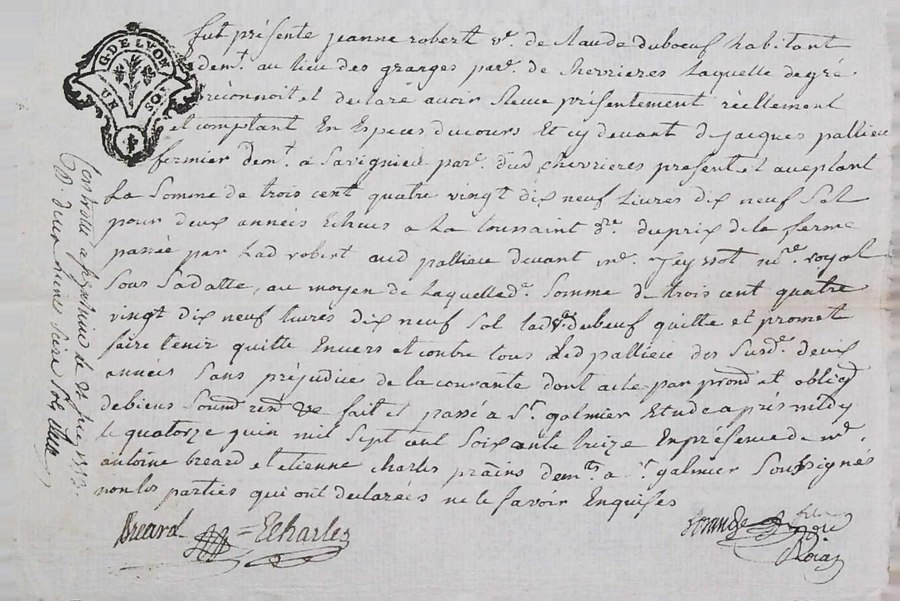 G. DE LYON
UN SOL
fut présente jeanne robert ve. de Claude duboeuf habitant
demt. au lieu des granges parse. de chevrieres laquelle de gré
reconnoit et declaré avoir Receue présentement réellement
et comptant En Especes du cours Et cy devant de jacques pallieu
fermier demt. a Savignieu parse. dud chevrieres present et aceptant
La Somme de trois cent quatre vingt dix neuf Livres dix neuf Sol
pour deux années Echues a la toussaint dre. du prix de la ferme
passée par Lad robert aud pallieu devant me. Teyssot nre. royal
Sous Sa datte, au moyen de laquelle de. Somme de trois cent quatre
vingt dix neuf Livres dix neuf Sol lad ve. duboeuf quitte et promet
faire tenir quitte Envers et contre tous led pallieu des Susde. deux
années Sans préjudice de la courante dont acte par et oblig
de biens Soum fait et passé a St. galmier Etude apres midy
le quatorze juin mil Sept cent Soixante treize En présence de me.
antoine breard et etienne charles demts. a St. galmier Soussignés
non les parties qui ont declarées ne le savoir Enquises
Breard = Echarles
Controllé a St galmier le juin 1773.
R. deux livres seize sols